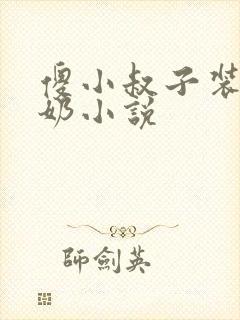 傻小叔子装
奶小說
師劍英